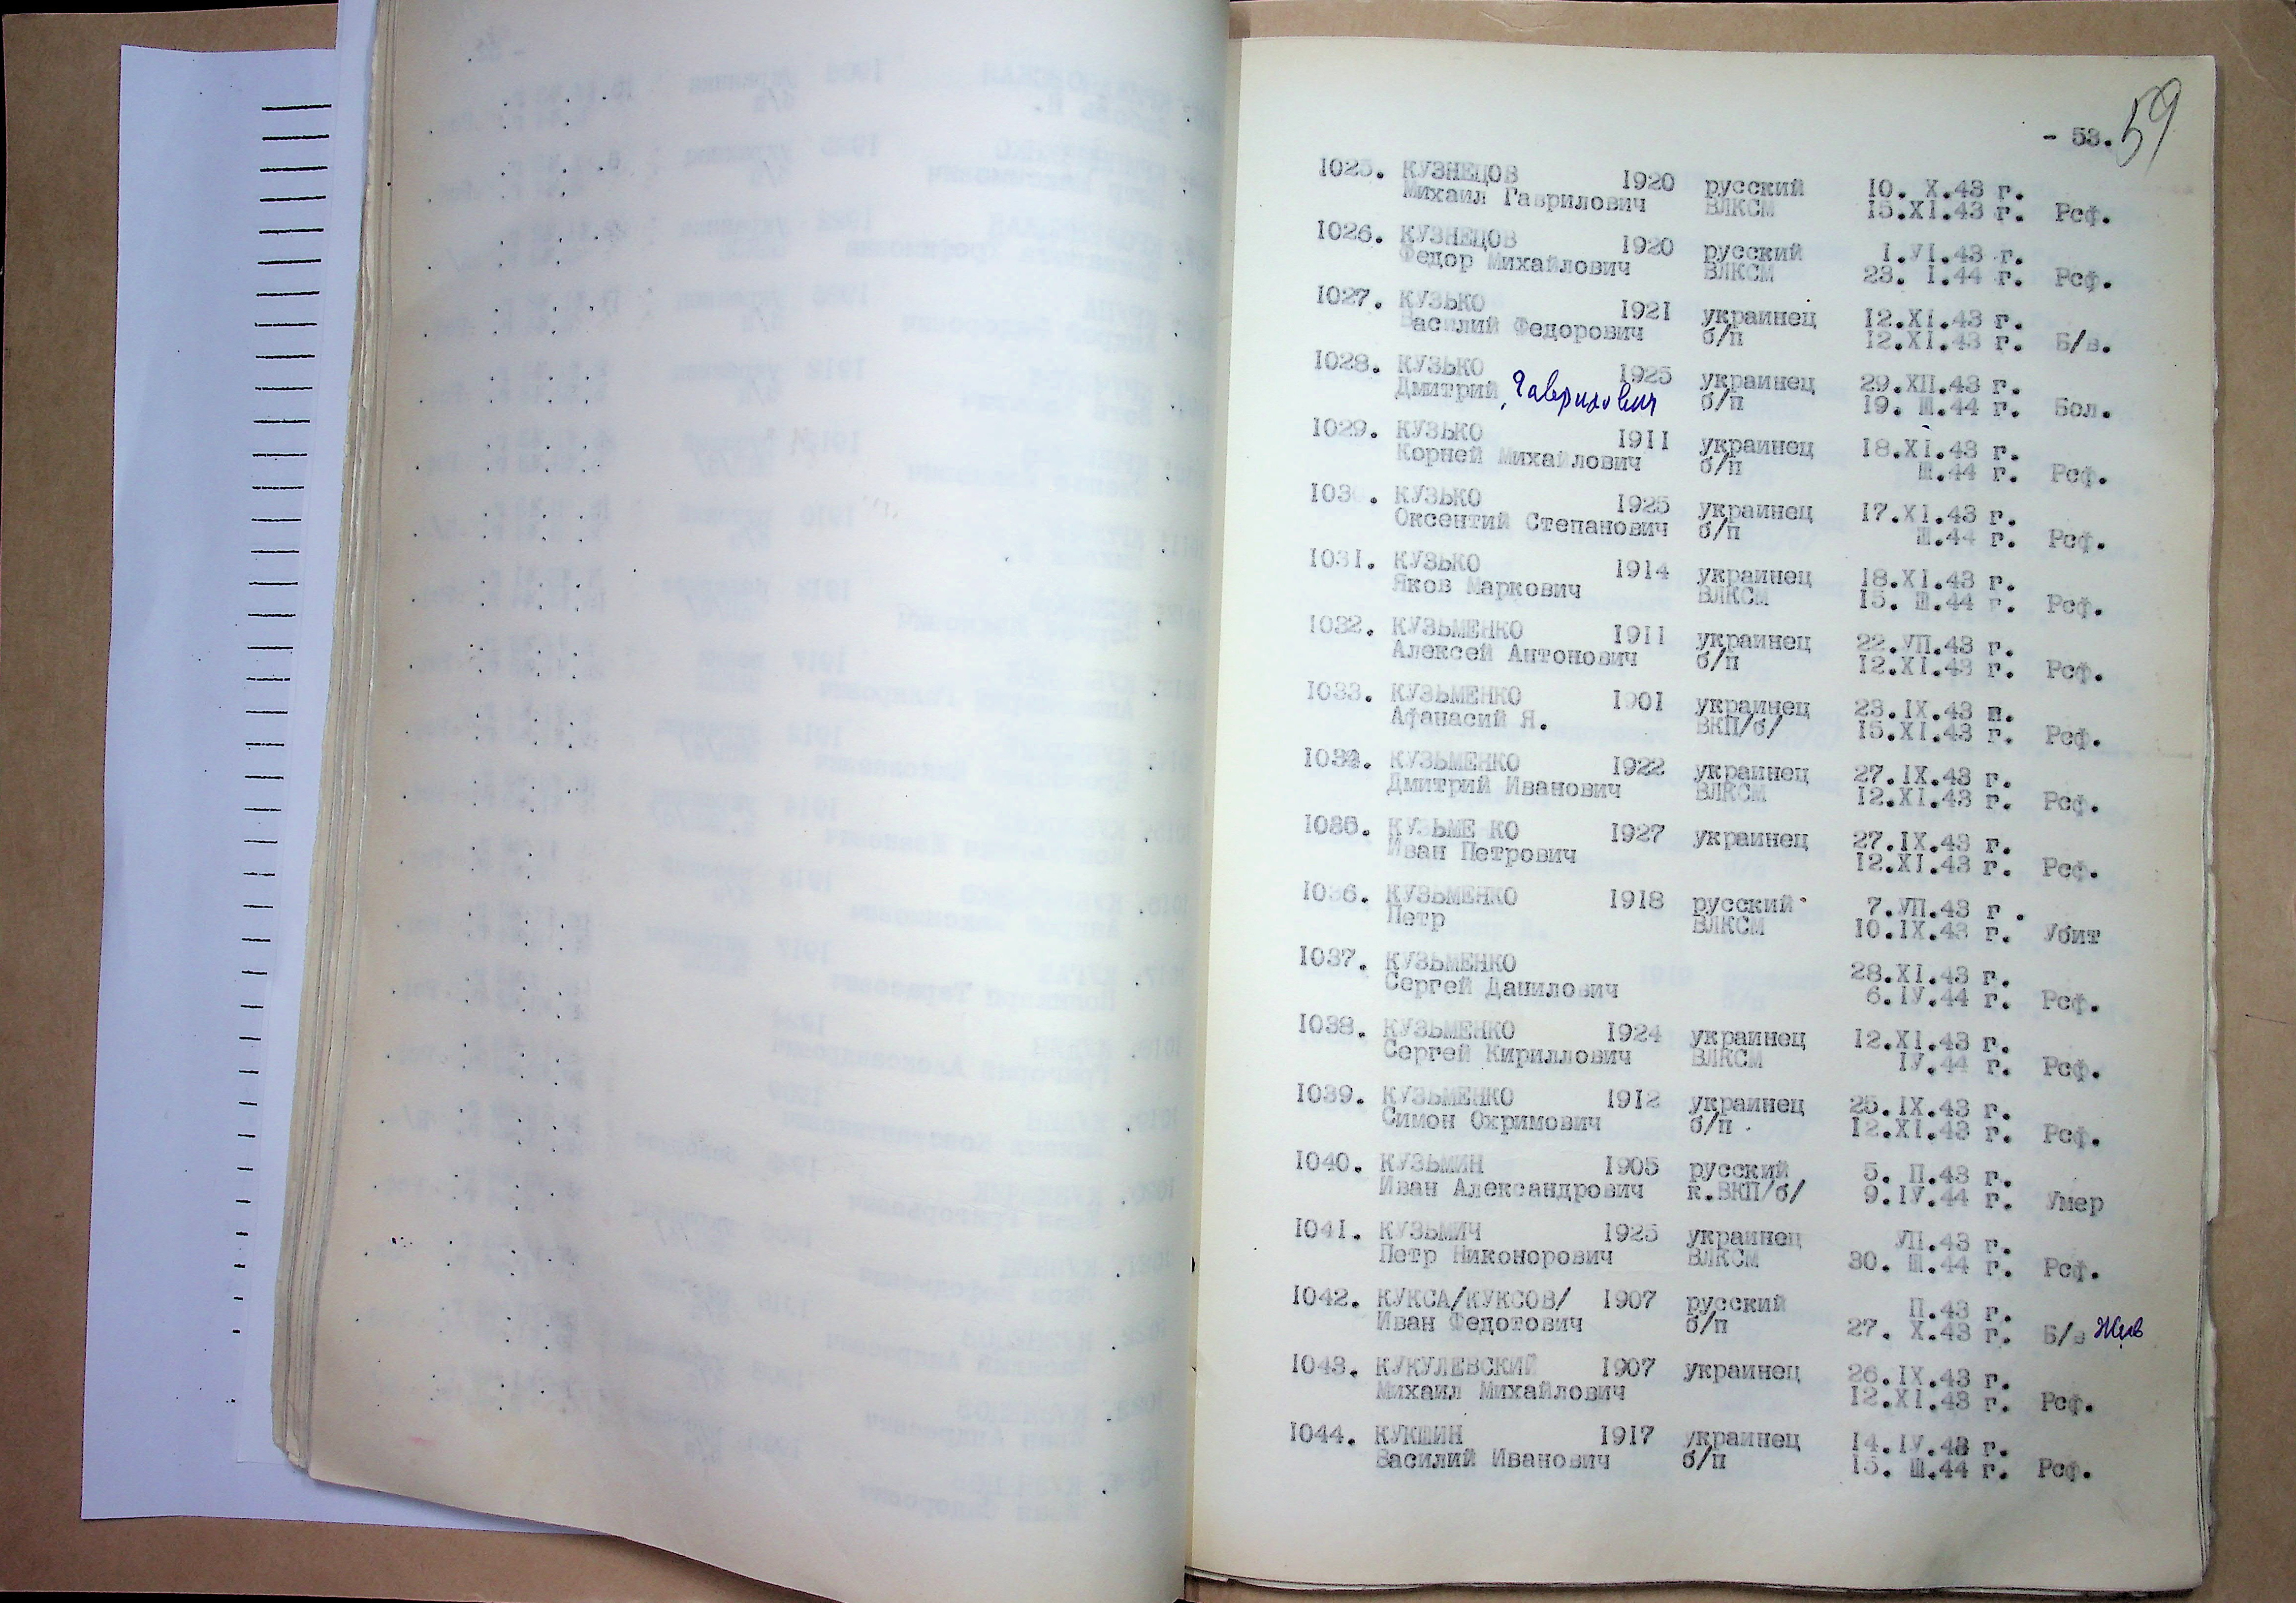 - 53.
59
1025. КУЗНЕЦОВ 1920 русский 10. X.43 г.
Михаил Гаврилович ВЛКСМ 15.XI.43 г. Рсф.
1026. КУЗНЕЦОВ 1920 русский 1.УI.43 г.
Федор Михайлович ВЛКСМ 23. I.44 г. Рсф.
1027. КУЗЬКО 1921 украинец 12.XI.43 г.
Василий Федорович б/п 12.XI.43 г. Б/в.
1028. КУЗЬКО 1925 украинец 29.ХП.43 г.
Дмитрий Гаврилович б/п 19. Ш.44 г. Бол.
1029. КУЗЬКО 1911 украинец 18.XI.43 г.
Корней Михайлович б/п Ш.44 г. Рсф.
103 . КУЗЬКО 1925 украинец 17.XI.43 г.
Оксентий Степанович б/п Ш.44 г. Рсф.
1031. КУЗЬКО 1914 украинец 18.XI.43 г.
Яков Маркович ВЛКСМ 15. Ш.44 г. Рсф.
1032. КУЗЬМЕНКО 1911 украинец 22.УП.43 г.
Алексей Антонович б/п 12.XI.43 г. Рсф.
1033. КУЗЬМЕНКО 1901 украинец 23.IX.43 г.
Афанасий Я. ВКП/б/ 15.XI.43 г. Рсф.
1034. КУЗЬМЕНКО 1922 украинец 27.IX.43 г.
Дмитрий Иванович ВЛКСМ 12.XI.43 г. Рсф.
1035. КУЗЬМЕ КО 1927 украинец 27.IX.43 г.
Иван Петрович 12.XI.43 г. Рсф.
1036. КУЗЬМЕНКО 1918 русский 7.УП.43 г .
Петр ВЛКСМ 10.IX.43 г. Убит
1037. КУЗЬМЕНКО 28.XI.43 г.
Сергей Данилович 6.IУ.44 г. Рсф.
1038. КУЗЬМЕНКО 1924 украинец 12.XI.43 г.
Сергей Кириллович ВЛКСМ IУ.44 г. Рсф.
1039. КУЗЬМЕНКО 1912 украинец 25.IX.43 г.
Симон Охримович б/п 12.XI.43 г. Рсф.
1040. КУЗЬМИН 1905 русский 5. П.43 г.
Иван Александрович к.ВКП/б/ 9.IУ.44 г. Умер
1041. КУЗЬМИЧ 1925 украинец УП.43 г.
Петр Никонорович ВЛКСМ 30. Ш.44 г. Рсф.
1042. КУКСА/КУКСОВ/ 1907 русский П.43 г.
Иван Федотович б/п 27. X.43 г. Б/в Жив
1043. КУКУЛЕВСКИЙ 1907 украинец 26.IX.43 г.
Михаил Михайлович 12.XI.43 г. Рсф.
1044. КУКШИН 1917 украинец 14.IУ.43 г.
Василий Иванович б/п 15. Ш.44 г. Рсф.